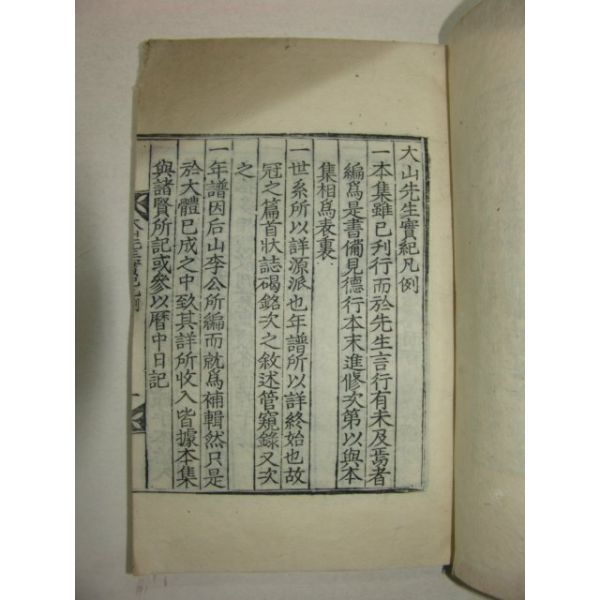 大山先生實紀凡例
一本集雖已刋行而於先生言行有未及焉者
編爲是書備見德行本末進修次第以與本
集相爲表裏
一世系所以詳源派也年譜所以詳終始也故
冠之篇首狀誌碣銘次之敘述管窺錄又次
之
一年譜因后山李公所編而就爲補輯然只是
於大體已成之中致其詳所收入皆據本集
與諸賢所記或參以曆中日記
大山先生實紀凡例